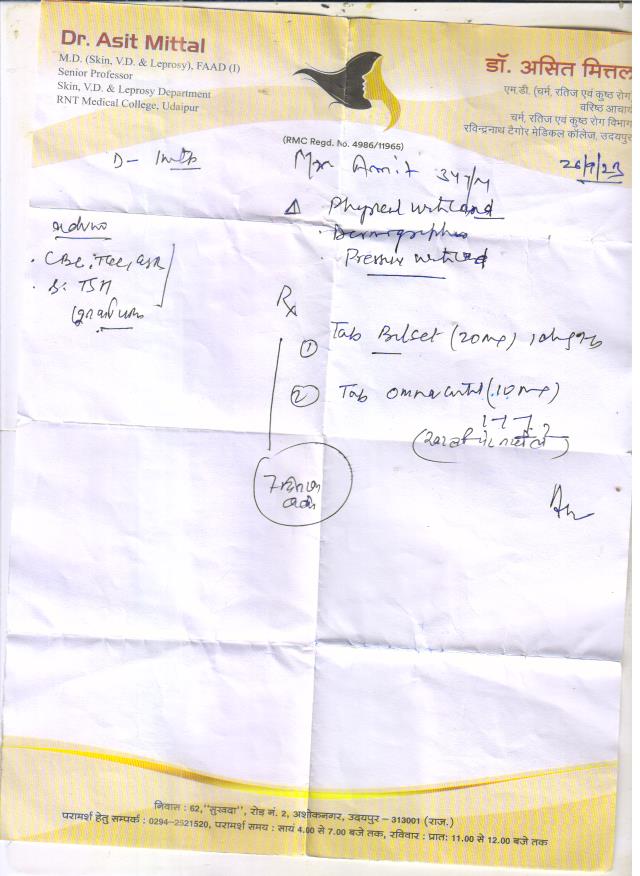 Dr. Asit Mittal
M.D. (Skin, V.D. & Leprosy), FAAD (I)
Senior Professor
Skin, V.D. & Leprosy Department
RNT Medical College, Udaipur
डॉ. असित मित्तल
एम.डी. (चर्म, रतिज एवं कुष्ठ रोग)
वरिष्ठ आचार्य
चर्म, रतिज एवं कुष्ठ रोग विभाग
रविन्द्रनाथ टैगोर मेडिकल कॉलेज, उदयपुर
(RMC Regd. No. 4986/11965)
D-
Amit 34y/M
26/9/23
Δ Physical urticaria
Dermographism
Pressure urticaria
CBC, TLC, ESR
S. TSH
Rx
① Tab Bilset (20mg)
② Tab (10mg)
7 दिन
निवास : 62,"सुखदा", रोड़ नं. 2, अशोकनगर, उदयपुर – 313001 (राज.)
परामर्श हेतु सम्पर्क : 0294-2521520, परामर्श समय : सायं 4.00 से 7.00 बजे तक, रविवार : प्रातः 11.00 से 12.00 बजे तक